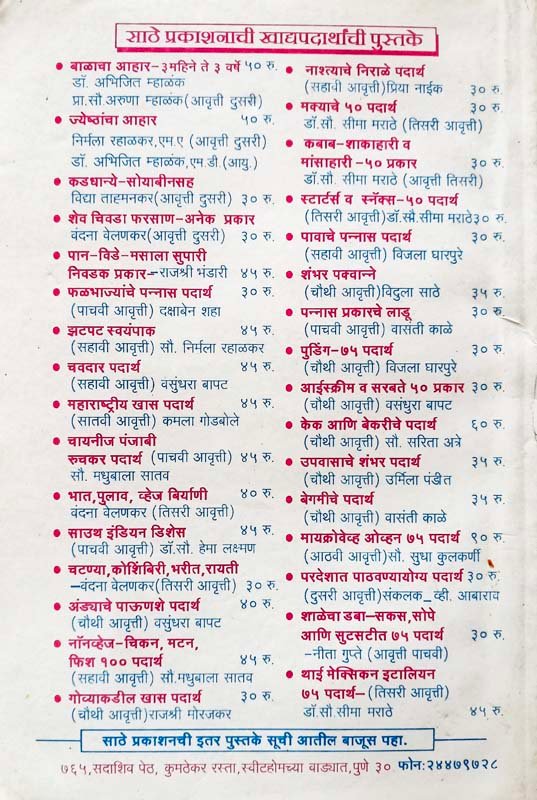 साठे प्रकाशनाची खाद्यपदार्थांची पुस्तके
● बाळाचा आहार-३महिने ते ३ वर्षे ५० रु.
डॉ. अभिजित म्हाळंक
प्रा.सौ अरुणा म्हाळंक(आवृत्ती दुसरी)
● ज्येष्ठांचा आहार ५० रु.
निर्मला रहाळकर,एम.ए (आवृत्ती दुसरी)
डॉ. अभिजित म्हाळंक,एम.डी.(आयु.)
● कडधान्ये-सोयाबीनसह
विद्या ताम्हनकर(आवृत्ती दुसरी) ३० रु.
● शेव चिवडा फरसाण-अनेक प्रकार
वंदना वेलणकर(आवृत्ती दुसरी) ३० रु.
● पान-विडे-मसाला सुपारी
निवडक प्रकार-राजश्री भंडारी ४५ रु.
● फळभाज्यांचे पन्नास पदार्थ ३० रु.
(पाचवी आवृत्ती) दक्षाबेन शहा
● झटपट स्वयंपाक ४५ रु.
(सहावी आवृत्ती) सौ. निर्मला रहाळकर
● चवदार पदार्थ ४५ रु.
(सहावी आवृत्ती) वसुंधरा बापट
● महाराष्ट्रीय खास पदार्थ ४५ रु.
(सातवी आवृत्ती) कमला गोडबोले
● चायनीज पंजाबी
रुचकर पदार्थ (पाचवी आवृत्ती) ४५ रु.
सौ. मधुबाला सातव
● भात,पुलाव, व्हेज बिर्याणी ४० रु.
वंदना वेलणकर (तिसरी आवृत्ती)
● साउथ इंडियन डिशेस ४५ रु.
(पाचवी आवृत्ती) डॉ.सौ. हेमा लक्ष्मण
● चटण्या,कोशिंबिरी,भरीत,रायती
-वंदना वेलणकर(तिसरी आवृत्ती) ३० रु.
● अंड्याचे पाऊणशे पदार्थ ४० रु.
(चौथी आवृत्ती) वसुंधरा बापट
● नॉनव्हेज-चिकन, मटन,
फिश १०० पदार्थ ४५ रु.
(सहावी आवृत्ती) सौ.मधुबाला सातव
● गोव्याकडील खास पदार्थ ३० रु.
(चौथी आवृत्ती)राजश्री मोरजकर
● नाश्त्याचे निराळे पदार्थ
(सहावी आवृत्ती)प्रिया नाईक ३० रु.
● मक्याचे ५० पदार्थ ३० रु.
डॉ.सौ. सीमा मराठे (तिसरी आवृत्ती)
● कबाब-शाकाहारी व
मांसाहारी -५० प्रकार ३० रु.
डॉ.सौ. सीमा मराठे (आवृत्ती तिसरी)
● स्टार्टर्स व स्नॅक्स-५० पदार्थ
(तिसरी आवृत्ती)डॉ.सौ.सीमा मराठे३० रु.
● पावाचे पन्नास पदार्थ ३० रु.
(सहावी आवृत्ती) विजला घारपुरे
● शंभर पक्वान्ने
(चौथी आवृत्ती)विदुला साठे ३५ रु.
● पन्नास प्रकारचे लाडू ३० रु.
(पाचवी आवृत्ती) वासंती काळे
● पुडिंग-७५ पदार्थ ३० रु.
(चौथी आवृत्ती) विजला घारपुरे
● आईस्क्रीम व सरबते ५० प्रकार ३० रु.
(चौथी आवृत्ती) वसंधुरा बापट
● केक आणि बेकरीचे पदार्थ ६० रु.
(चौथी आवृत्ती) सौ. सरिता अत्रे
● उपवासाचे शंभर पदार्थ ३५ रु.
(चौथी आवृत्ती) उर्मिला पंडीत
● बेगमीचे पदार्थ ३५ रु.
(चौथी आवृत्ती) वासंती काळे
● मायक्रोवेव्ह ओव्हन ७५ पदार्थ ९० रु.
(आठवी आवृत्ती)सौ. सुधा कुलकर्णी
● परदेशात पाठवण्यायोग्य पदार्थ ३० रु.
(दुसरी आवृत्ती)संकलक_व्ही. आबाराव
● शाळेचा डबा-सकस,सोपे
आणि सुटसटीत ७५ पदार्थ ३० रु.
-नीता गुप्ते (आवृत्ती पाचवी)
● थाई मेक्सिकन इटालियन
७५ पदार्थ-(तिसरी आवृत्ती)
डॉ.सौ.सीमा मराठे ४५ रु.
साठे प्रकाशनची इतर पुस्तके सूची आतील बाजूस पहा.
७६५,सदाशिव पेठ, कुमठेकर रस्ता,स्वीटहोमच्या वाड्यात,पुणे ३० फोन:२४४७९७२८